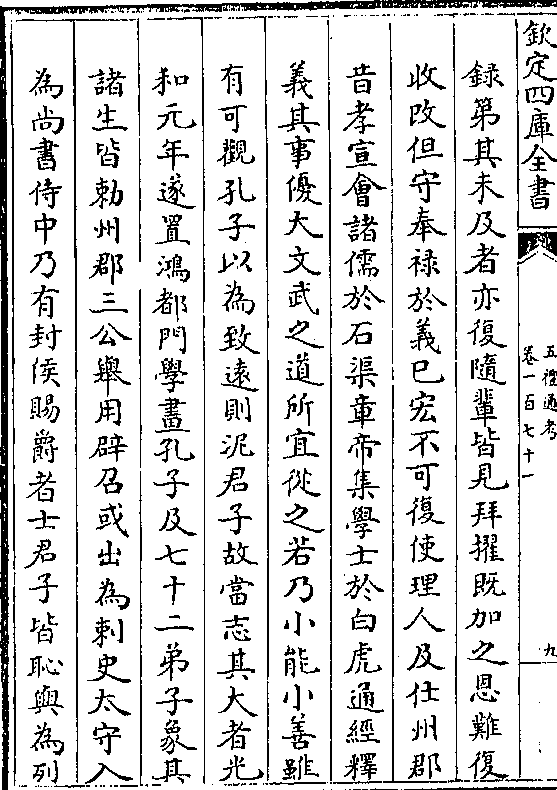 欽定四庫全書
五禮通考
卷一百七十一
九
錄第其未及者亦復隨輩皆見拜擢既加之恩難復
收改但守奉禄於義已宏不可復使理人及仕州郡
昔孝宣會諸儒於石渠章帝集學士於白虎通經釋
義其事優大文武之道所宜從之若乃小能小善雖
有可觀孔子以為致逺則泥君子故當志其大者光
和元年遂置鴻都門學畫孔子及七十二弟子象其
諸生皆勅州郡三公舉用辟召或出為刺史太守入
為尚書侍中乃有封侯賜爵者士君子皆恥與為列